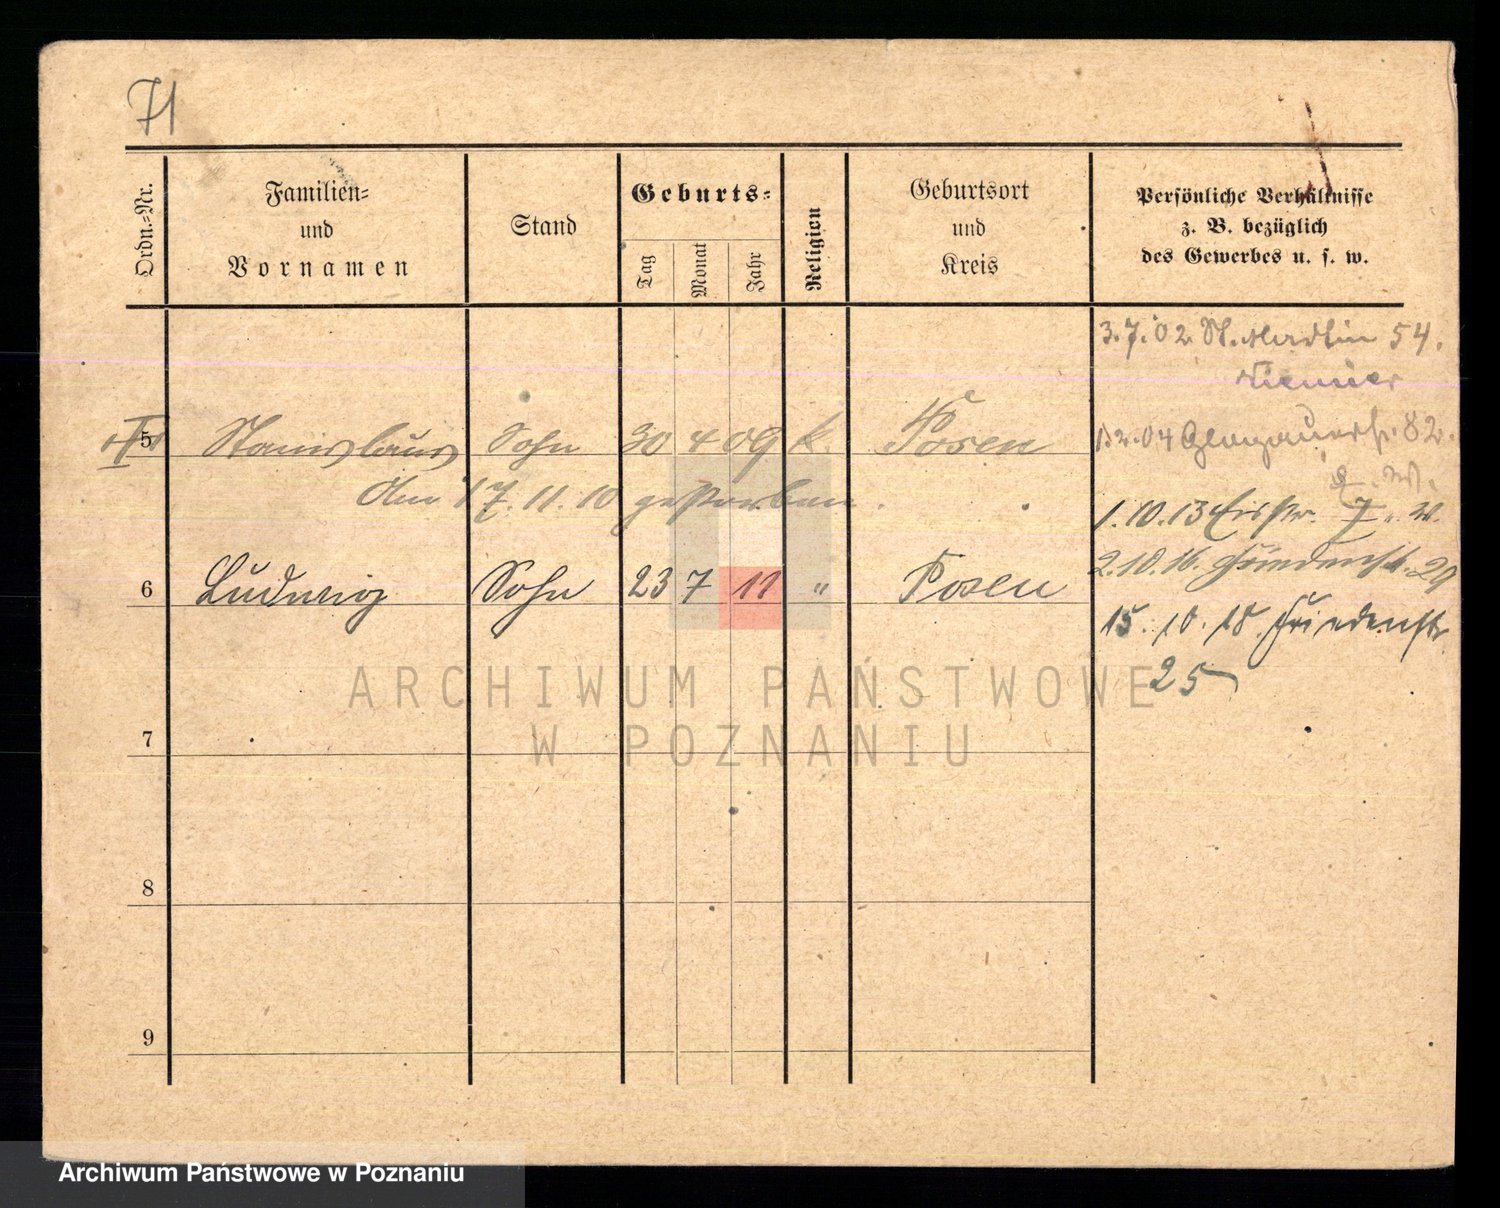 71
Ordn.=Nr.
Familien=
und
Vornamen
Stand
Geburts=
Tag
Monat
Jahr
Religion
Geburtsort
und
Kreis
Persönliche Verhältnisse
z. B. bezüglich
des Gewerbes u. s. w.
3.7.02 St. Martin 54.
5 Stanislaus Sohn 30 4 09 k. Posen
04 Glogauerstr. 82.
Am 17.11.10 gestorben.
1.10.13 7
6 Ludwig Sohn 23 7 11 " Posen
2.10.16. Friedenstr. 29
15.10.18. Friedenstr.
25
7
8
9
ARCHIWUM PAŃSTWOWE
W POZNANIU
Archiwum Państwowe w Poznaniu